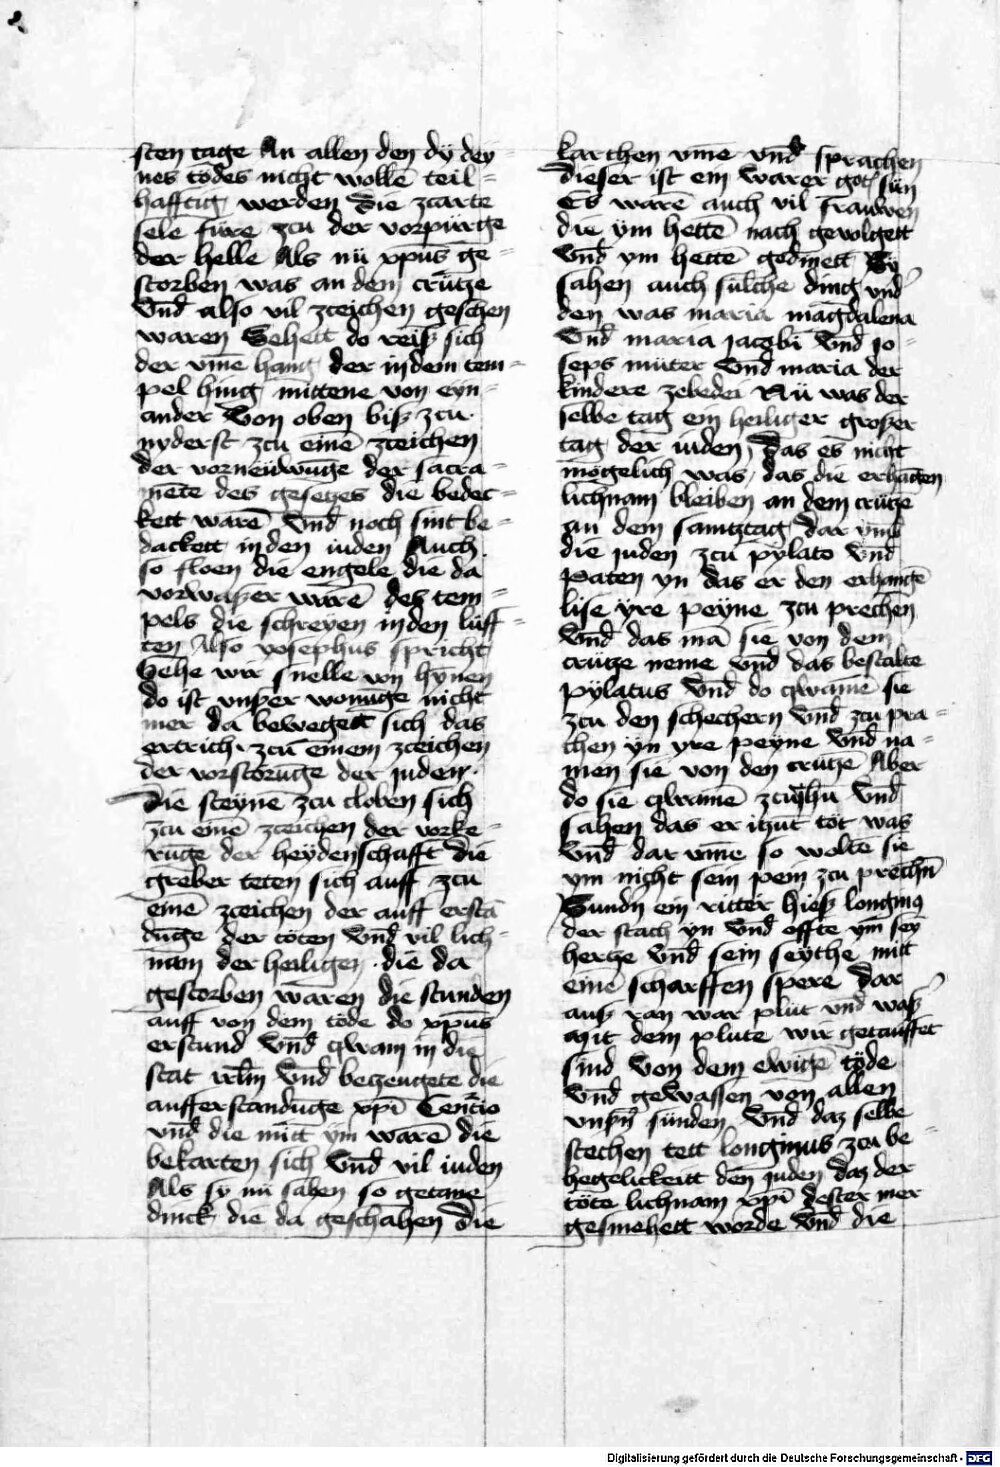 sten tage An allen den dÿ dey=
nes tödes nicht wollē teil=
hafftig werden Die zcarte
sele fure zcu der vorpürge
der helle Als nü xp̄us ge=
storben was an dem crütze
Vnd̄ also vil zceichen geschen
waren Sehett do reiß sich
der vmē hang der in dem tem=
pel hing mittene von eyn=
ander Von oben biß zcu
nyderst zcu einē zceichen
der vorneüwūge der sacra=
mēte des gesetzes die bedec=
kett warē Vnd̄ noch sint be=
dackett in den iuden Auch
so floen die engele die da
vorwaßer warē des tem=
pels die schreyen in den lüff=
ten Also yosephus spricht
Gehe wir snelle von hÿnen
do ist vnßer wonūge nicht
mer da bewegett sich das
ertrich zcu einem zceichen
der vorstorūge der juden
Die steynē zcu cloben sich
zcu einē zceichen der vorke=
rūge der heÿdenschafft die
greber teten sich auff zcu
einē zceichen der auff erstā
dūge der töten Vnd̄ vil lich=
nam der heiligen die da
gestorben waren die stunden
auff von dem töde do xp̄us
erstund Vnd̄ qwam in die
stat irl̄m Vnd̄ betzeugete die
aufferstandūge xp̄i Centio
vnd̄ die mitt ÿm warē die
bekarten sich Vnd̄ vil iuden
Als sÿ nü sahen so getane
dinck die da geschahen Die
karthen vme vnd̄ sprachen
dieser ist ein warer got sün
Es warē auch vil frauwen
die ym hettē nach gevolgett
Vnd̄ ym hettē gedinett Sÿ
sahen auch sülche ding vnd̄
den was maria magdalena
Vnd̄ maria jacobi Vnd̄ jo=
seps müter Vnd̄ maria der
kindere zebedei Nü was der
selbe tag ein heiliger großer
tag der iuden Das es nicht
mögelich was das die erhāgen
lichnam bleiben an dem crütze
an dem samtztag Dar vmb
die juden zcu pylato Vnd̄
paten yn das er den erhangē
lise yre peyne zcu prechen
Vnd̄ das mā sie von dem
crütze neme Vnd̄ das bestalte
pÿlatus Vnd̄ do qwamē sie
zcu den schechern Vnd̄ zcu pra=
chen ÿn yre peyne Vnd̄ na=
men sie von den crutze Aber
do sie qwamē zcu ihu Vnd̄
sahen das er itzut töt was
Vnd̄ dar vmē so woltē sie
ym nicht sein pein zcu prechn̄
Sundn̄ ein ritter hieß longinꝰ
der stach yn Vnd̄ offte ym seȳ
hertze Vnd̄ sein seÿthe mitt
einē scharffen spere Dar
auß ran war plut vnd̄ waß̄
Mit dem plute wir getauffet
sind Von dem ewigē töde
Vnd̄ gewassen von allen
vnßn̄ sünden Vnd̄ daz selbe
stechen tett longinus zcu be=
hegelickeitt den juden daz der
töte lichnam xp̄i dester mer
gesmehett worde Vnd̄ die
Digitalisierung gefördert durch die Deutsche Forschungsgemeinschaft - DFG